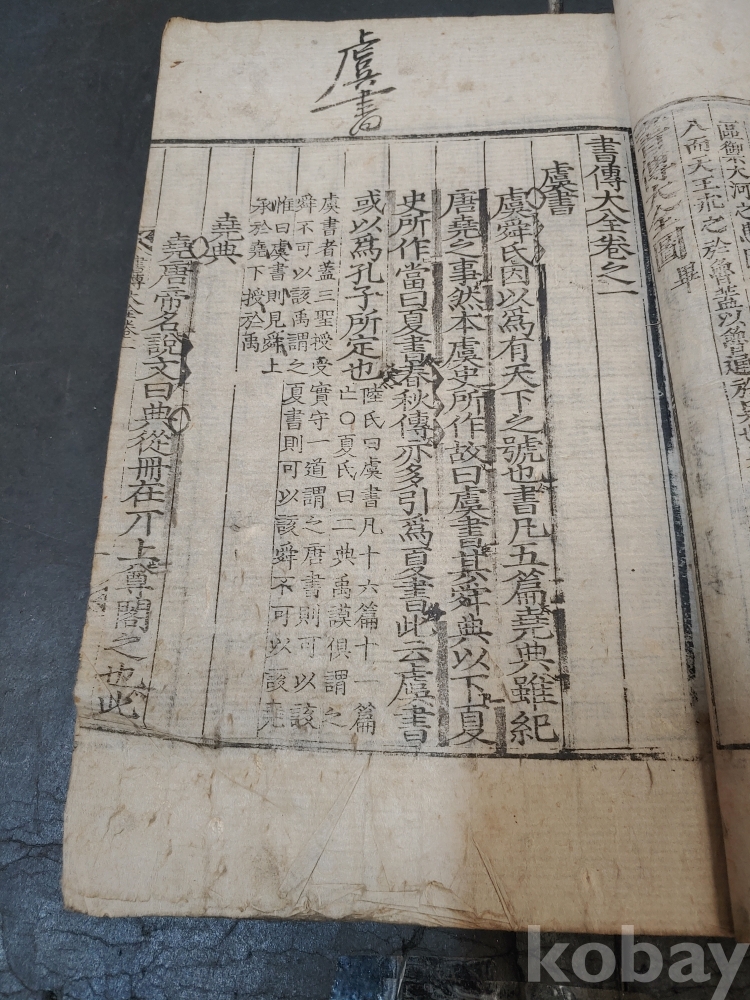 虞書
書傳大全卷之一
虞書
虞舜氏因以爲有天下之號也書凡五篇堯典雖紀
唐堯之事然本虞史所作故曰虞書其舜典以下夏
史所作當曰夏書春秋傳亦多引爲夏書此云虞書
或以爲孔子所定也
陸氏曰虞書凡十六篇十一篇
亡○夏氏曰二典禹謨俱謂之
虞書者蓋三聖授受實守一道謂之唐書則可以該
舜不可以該禹謂之夏書則可以該舜不可以該堯
惟曰虞書則見舜上
承於堯下授於禹
堯典
堯唐帝名說文曰典從冊在丌上尊閣之也此
書傳大全卷一
書傳大全圖畢
八而天王
kobay